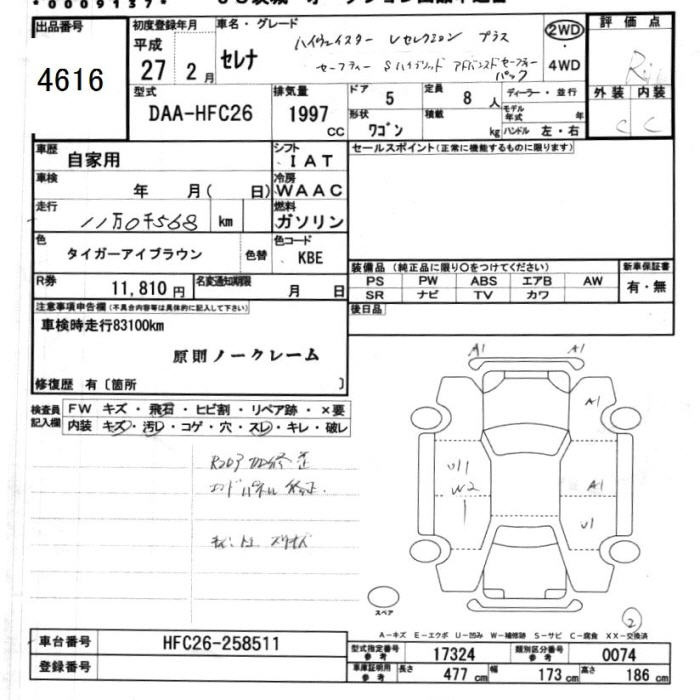 *0009137*
出品番号
4616
初度登録年月
平成
27 2月
車名・グレード
セレナ
ハイウェイスター Vセレクション プラス
セーフティー Sハイブリッド アドバンスドセーフティー
パック
2WD
・
4WD
評価点
外装 内装
C C
型式
DAA-HFC26
排気量
1997
CC
ドア
5
定員
8 人
形状
ワゴン
積載
kg
ディーラー・並行
モデル
年式
年
ハンドル 左・右
車歴
自家用
シフト
IAT
車検
年 月( 日)
冷房
WAAC
走行
11万0千568
km
燃料
ガソリン
色
タイガーアイブラウン
色替
色コード
KBE
R券
11,810円
名変通知期限
月 日
セールスポイント(正常に機能するものに限ります)
装備品(純正品に限り○をつけてください)
PS PW ABS エアB AW
SR ナビ TV カワ
新車保証書
有・無
後日品
注意事項申告欄(不具合内容等は具体的に記入して下さい)
車検時走行83100km
原則ノークレーム
修復歴 有〔箇所 〕
検査員
記入欄
FW キズ・飛石・ヒビ割・リペア跡・×要
内装 キズ・汚レ・コゲ・穴・スレ・キレ・破レ
エンドパネル修正
A1 A1
A1
U1
W2
A1
U1
スペア
2
A-キズ E-エクボ U-凹み W-補修跡 S-サビ C-腐食 XX-交換済
車台番号
HFC26-258511
登録番号
型式指定番号
参考
17324
類別区分番号
参考
0074
車庫証明用
参考
長さ
477 cm
幅
173 cm
高さ
186 cm